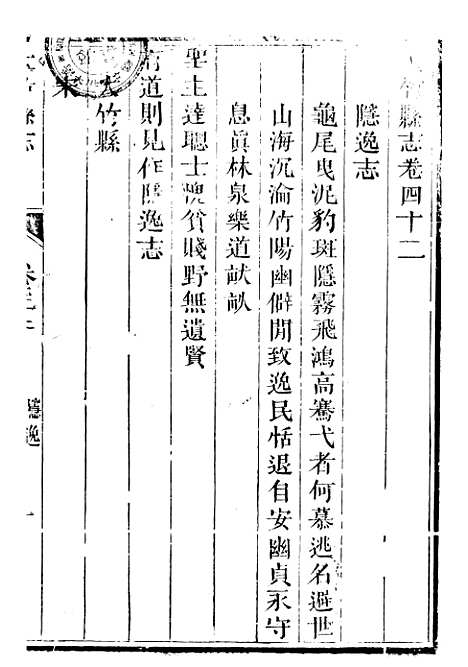 竹縣志卷四十二
隱逸志
龜尾曳泥豹斑隱霧飛鴻高騫弋者何慕逃名避世
山海沉淪竹陽幽僻閒致逸民恬退自安幽貞永守
息眞林泉樂道畎畝
聖主達聰士愧貧賤野無遺賢
有道則見作隱逸志
大竹縣
宋
縣志
隱逸
一